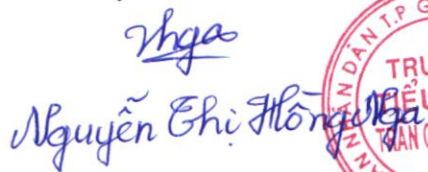 Nga
Nguyễn Thị Hồng Nga
DÂN T.P
TRƯ
TIỂU